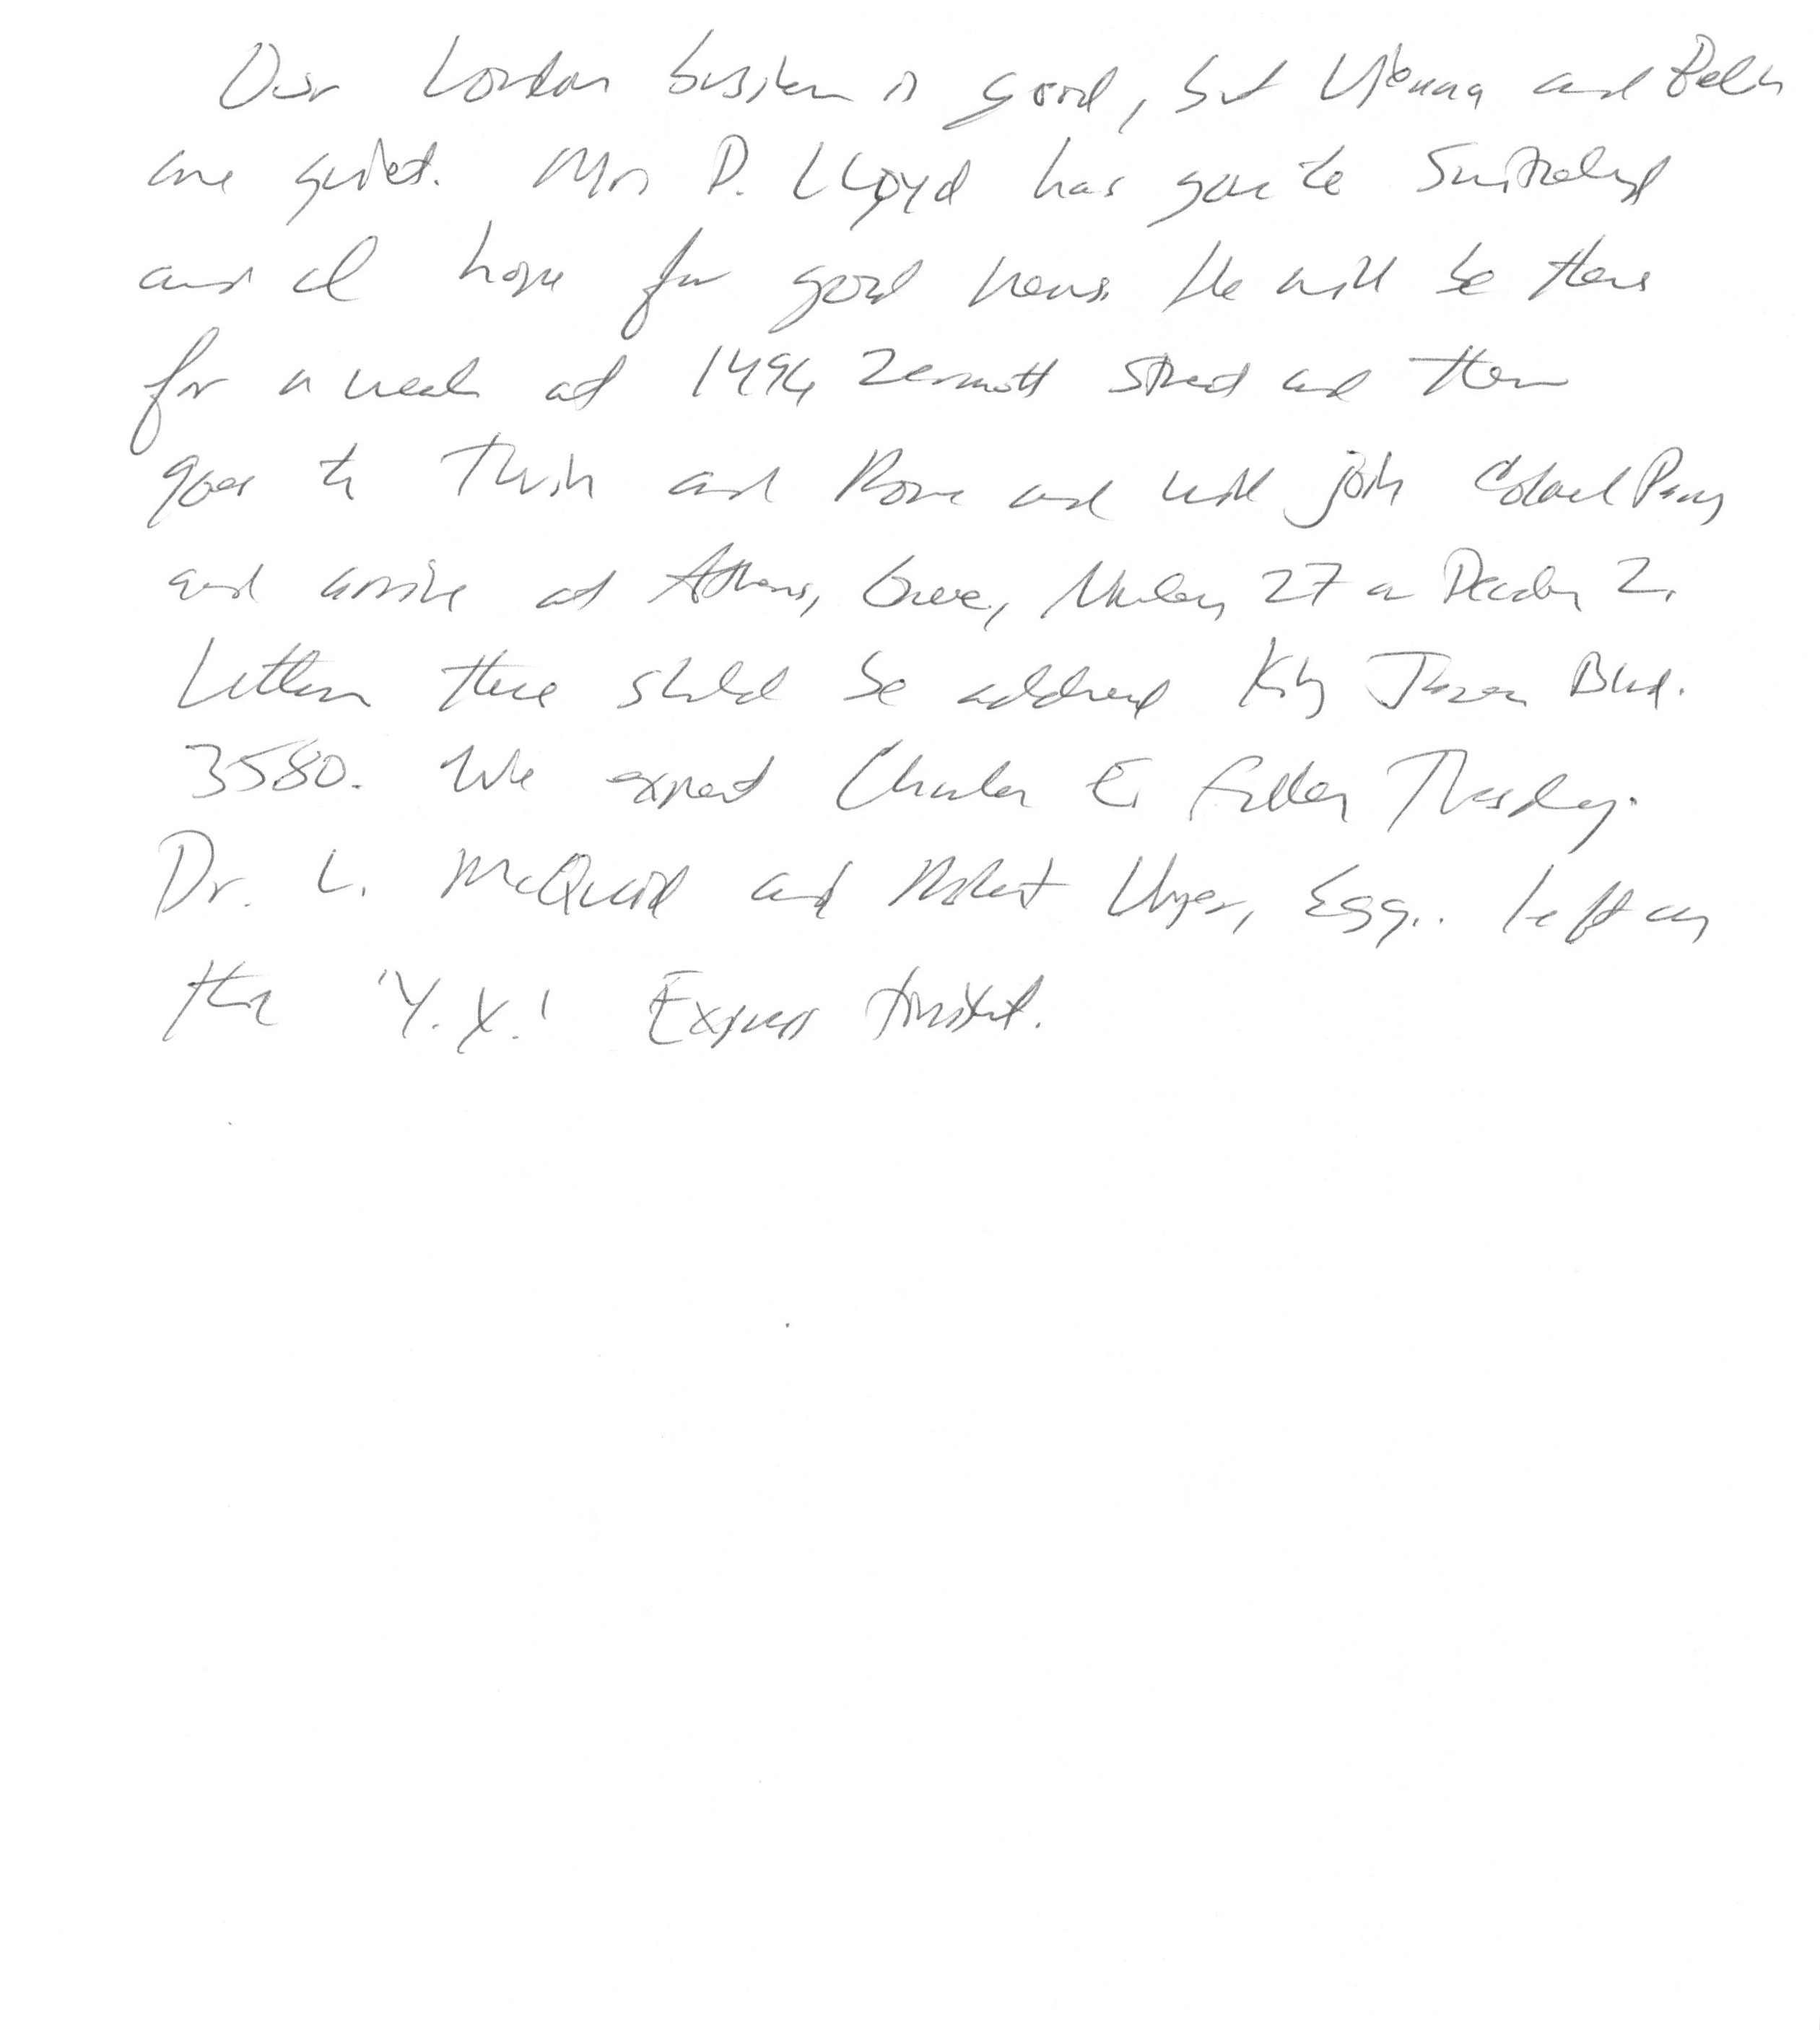 Our London business is good, but Vienna and Berlin
are quiet. Mr. D. Lloyd has gone to Switzerland
and I hope for good news. He will be there
for a week at 1496 Zermott Street and then
goes to Turin and Rome and will join Colonel Parry
and arrive at Athens, Greece, November 27 or December 2.
Letters there should be addressed King James Blvd.
3580. We expect Charles E. Fuller Tuesday.
Dr. L. McQuaid and Robert Unger, Esq., left on
the 'Y.X.' Express tonight.